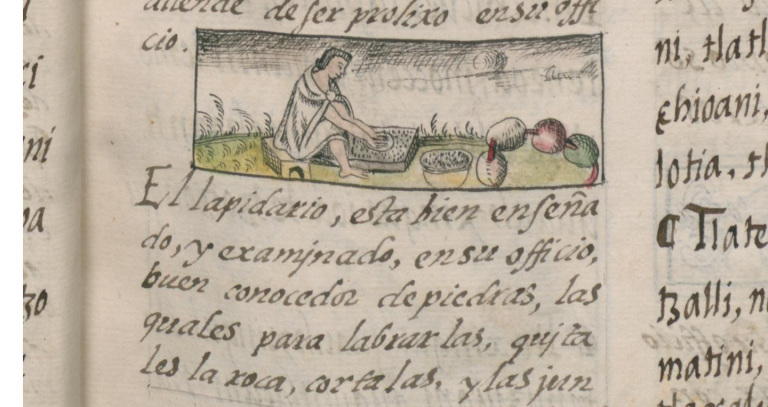 allende de ser prolixo en su offi
cio.
El lapidario, esta bien enseña
do, y examjnado, en su officio,
buen conocedor de piedras, las
quales para labrar las, qujta
les la roca, corta las, y las jun
ni, tlatl
chioani,
lotia, tl
¶ Tlate
tzalli, n
matini,